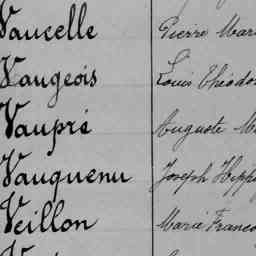 Vaucelle Pierre Mari
Vaugeois Louis Théodo
Vaupré Auguste M
Vauquenu Joseph Hipp
Veillon Marie Franço